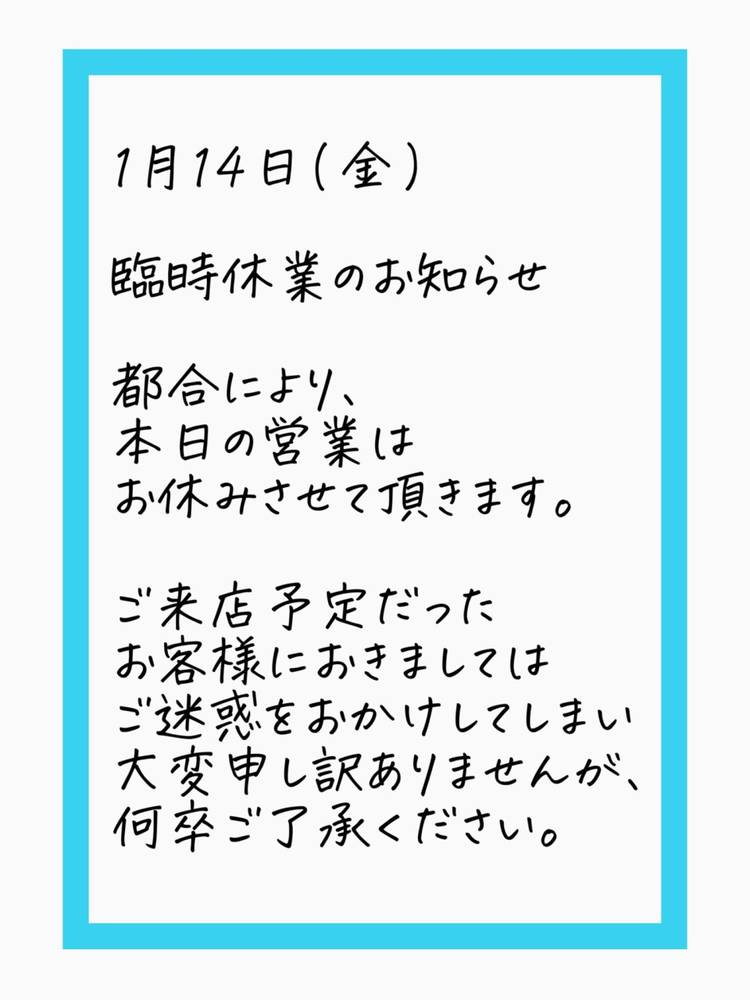 1月14日(金)
臨時休業のお知らせ
都合により、
本日の営業は
お休みさせて頂きます。
ご来店予定だった
お客様におきましては
ご迷惑をおかけしてしまい
大変申し訳ありませんが、
何卒ご了承ください。